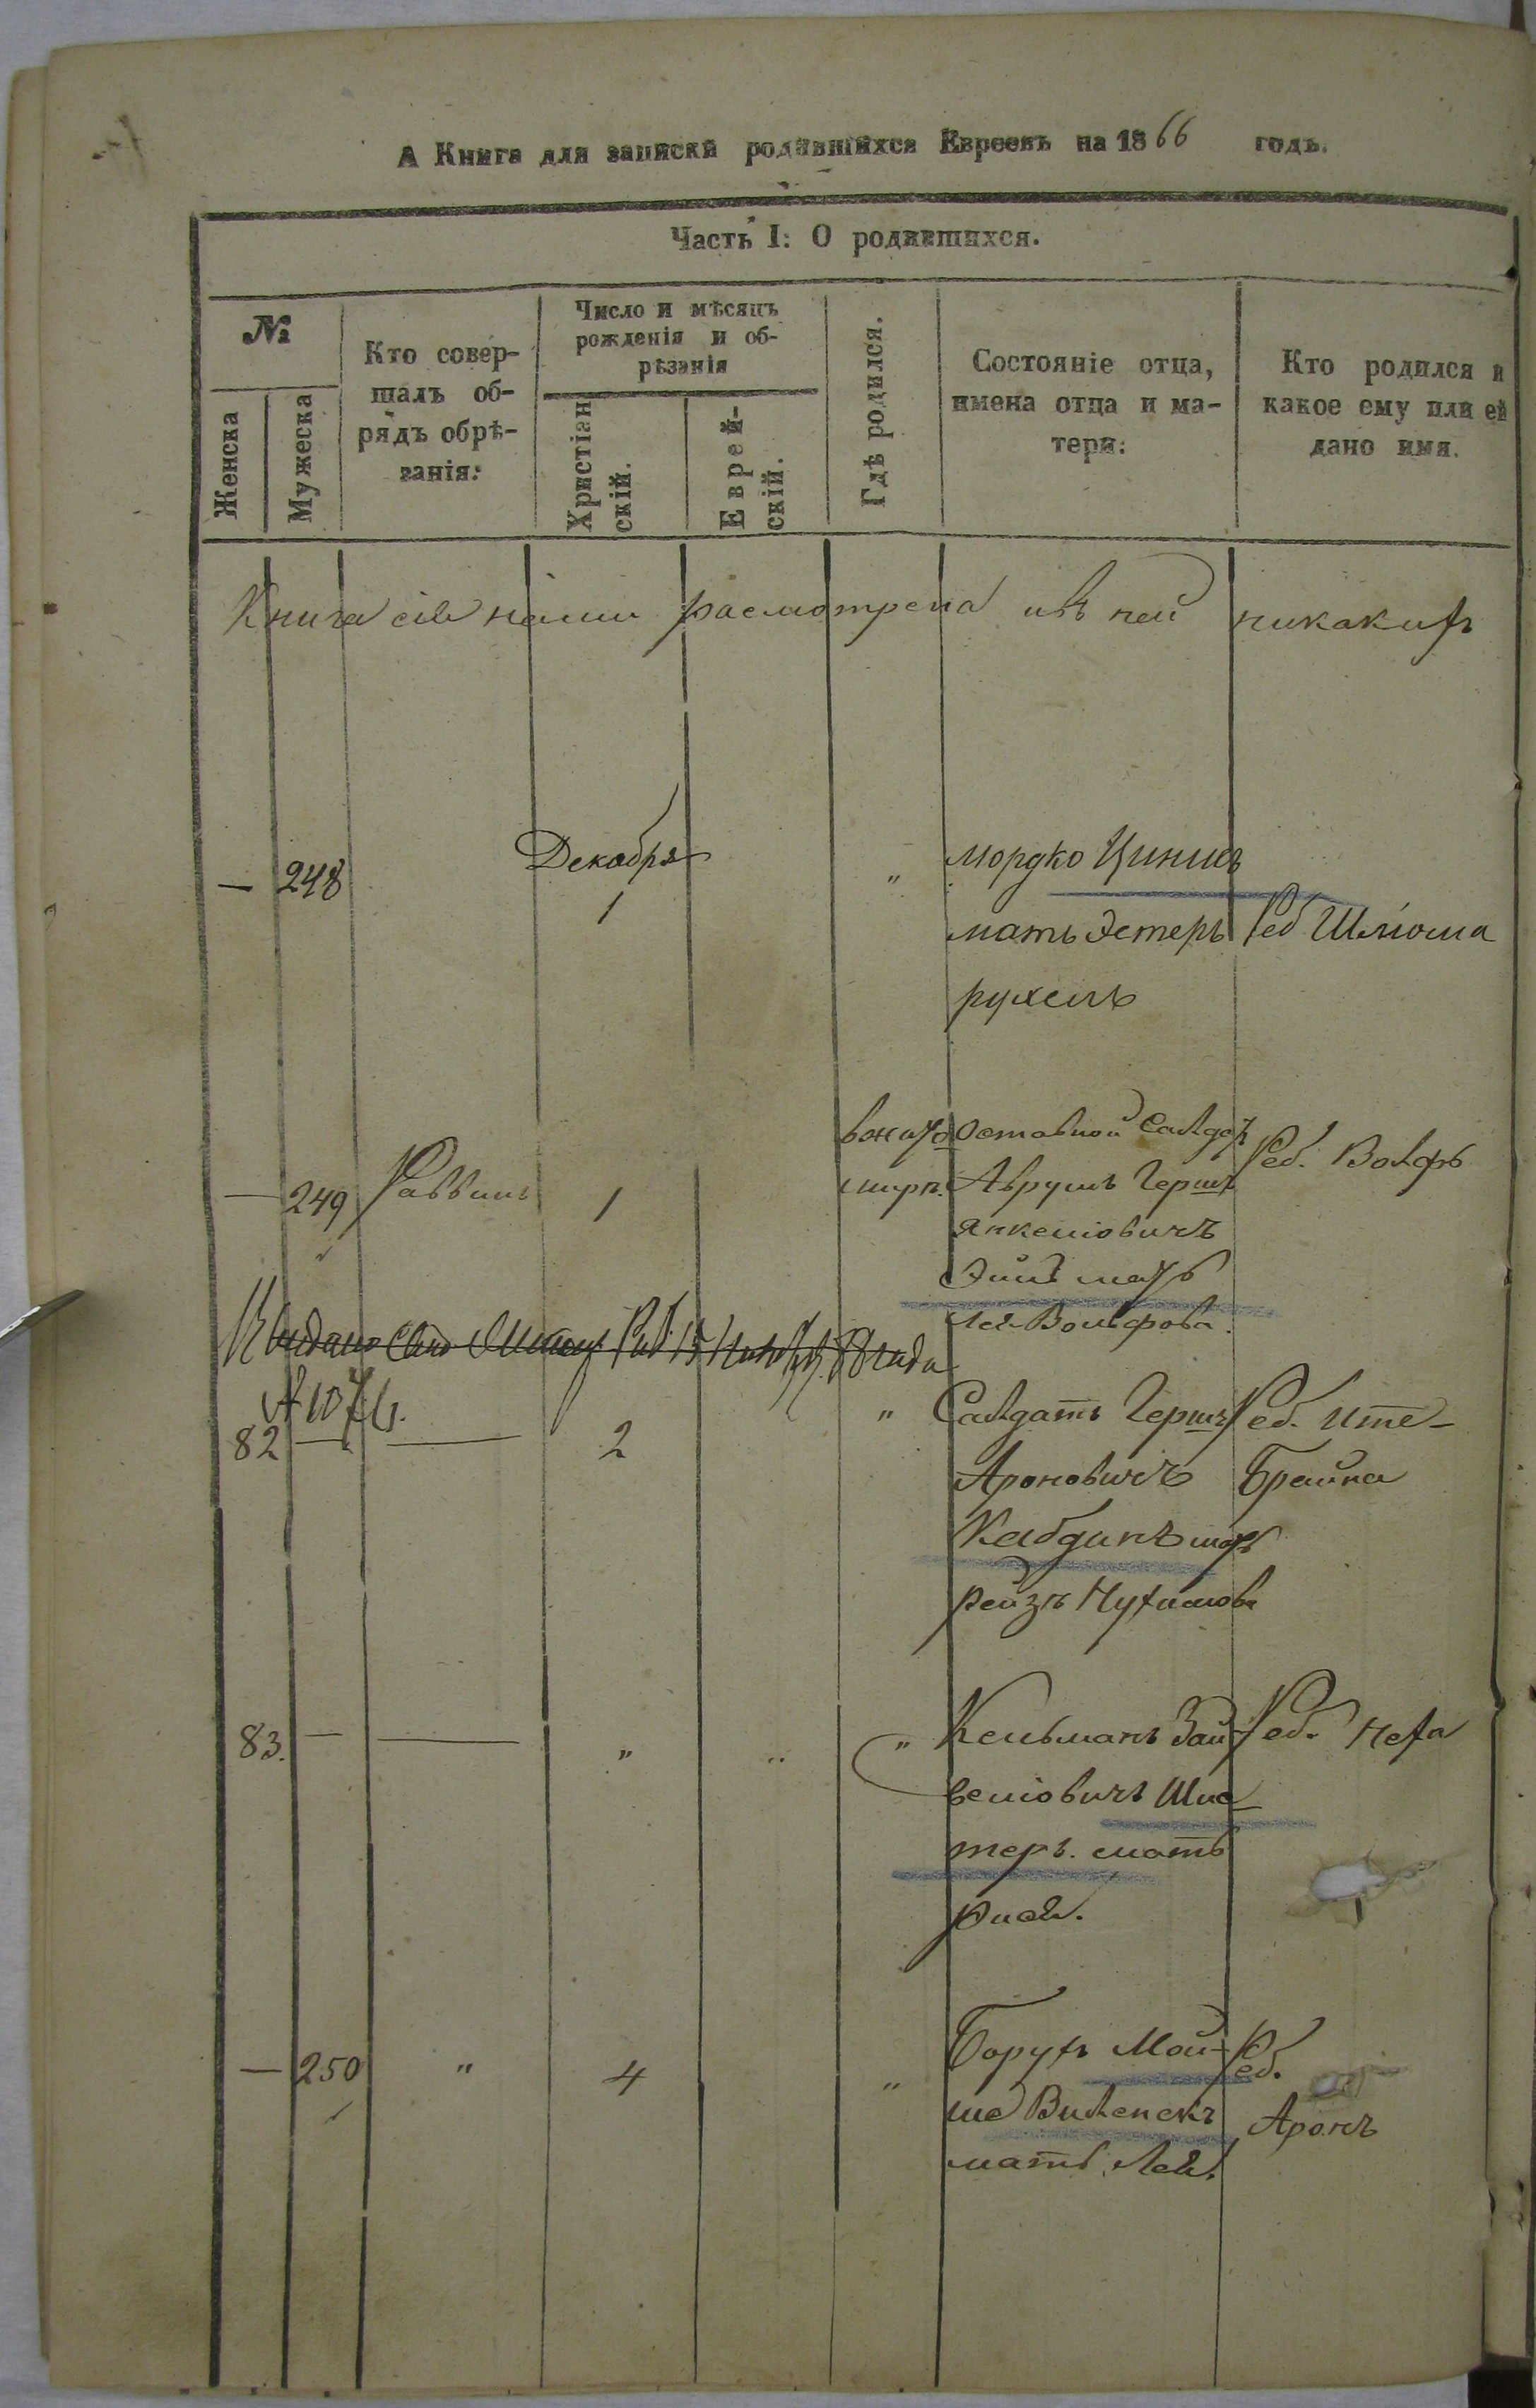 А Книга для записки родившихся Евреевъ на 1866 годъ.
Часть I: О родившихся.
№
Женска
Мужеска
Кто совер-
шалъ об-
рядъ обрѣ-
занія:
Число и мѣсяцъ
рожденія и об-
рѣзанія
Христіан
скій.
Еврей-
скій.
Гдѣ родился.
Состояніе отца,
имена отца и ма-
тери:
Кто родился и
какое ему или ей
дано имя.
Книга сія нами расмотрена и въ ней никакихъ
— 248 Декабря
1
" Мордко
мать Эстеръ
рухель
Реб Шліома
— 249 Раввинъ 1
Отставной Салдатъ
Аврумъ Гершъ
Янкеліовичъ
мать
Лея Вольфова.
Реб. Волфъ
82 — — 2 "
Салдатъ Гершъ
Ароновичъ
мать
Рейзъ Нухимова
Реб. Ите-
Брайна
83. — — " " "
Кельманъ Зай-
веліовичъ Шис-
теръ. мать
Рися.
Реб. Неха
— 250 " 4 "
Борухъ Мой-
ше Виленскъ
мать Лея.
Реб.
Аронъ